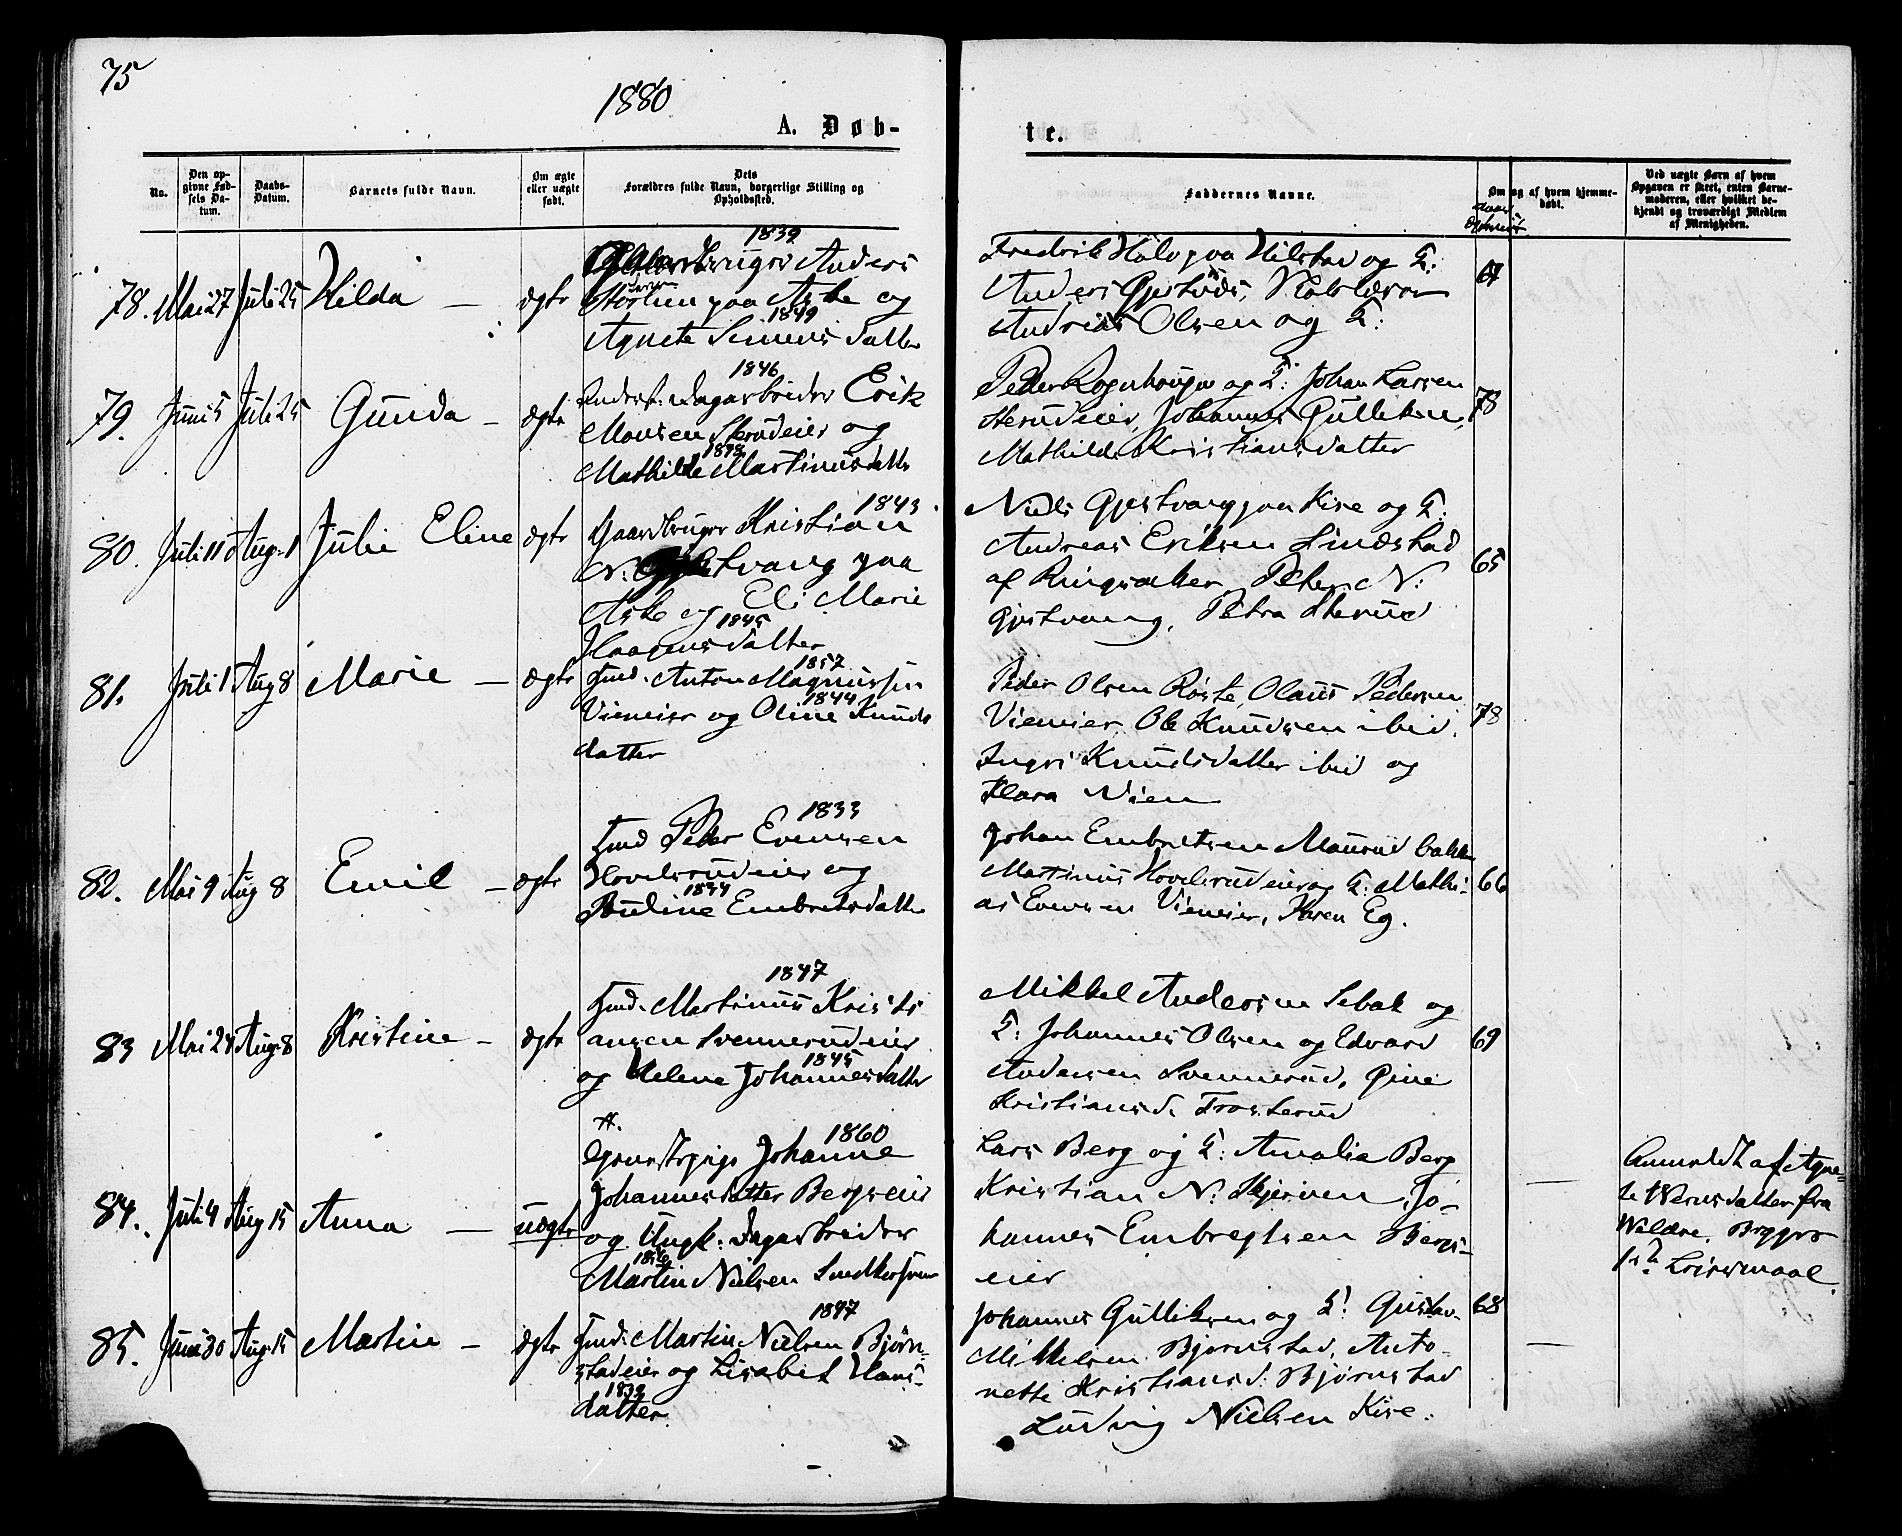 75
1880
A. Døb-
te.
No.
Den op-
givne Fød-
sels Da-
tum.
Daabs-
Datum.
Barnets fulde Navn.
Om ægte
eller uægte
født.
Dets
Forældres fulde Navn, borgerlige Stilling og
Opholdssted.
Faddernes Navne.
Om og af hvem hjemme-
døbt.
Ved uægte Børn af hvem
Opgaven er skeet, enten Barne-
moderen, eller hvilket be-
kjendt og troværdigt Medlem
af Menigheden.
78. Mai 27 Juli 25 Hilda — ægte
1839
Anders
paa Aske og
1849
Agnete Simensdatter
Fredrik Holo paa Hilstad og
Anders
Andreas Olsen og
67
79. Juni 5 Juli 25 Gunda — ægte
1846
Inders. Dagarbeider Erik
Monsen Skrudeier og
1838
Mathilde Martinusdatter
Peder og Johan Larsen
Johannes Gulliksen,
Mathilde Kristiansdatter
78
80. Juli 11 Aug. 1 Julie Eline ægte
1843
Gaardbruger Kristian
N. Gjestvang paa
Aske og Eli Marie
1845
Haagensdatter
Niels Gjestvang paa Kise og
Andreas Eriksen Lindstad
af Ringsaker, Peter N:
Gjestvang, Petra Skerud
65
81. Juli 1 Aug 8 Marie — ægte
1857
Inds. Anton Magnussen
1844
Vieneier og Oline Knuds
datter
Peder Olsen Røste, Olaus Pedersen
Vieneier, Ole Knudsen ibid.
Ingri Knudsdatter ibid og
Klara Vien
78
82. Mai 9 Aug 8 Emil — ægte
1833
Inds Peder Evensen
Hovelsrudeier og
1834
Pauline Embretsdatter
Johan Embretsen Maurud bakken
Martinus Hovelsrudeier og Mathi-
as Evensen Vieneier, Karen Eg.
66
83 Mai 24 Aug. 8 Kristine — ægte
1847
Inds. Martinus Kristi
ansen Svennerudeier
1845
og Helene Johannesdatter
Mikkel Andersen Sebak og
Johannes Olsen og Edvard
Andersen Svennerud,
Kristiansd. Trosterud
69
84. Juli 4 Aug 15 Anna — uægte
1860
Johanne
Johannesdatter Bergseier
og Ungk. Dagarbeider
Martin Nielsen
Lars Berg og Amalia Berg
Kristian N. Skjerven, Jo-
hannes Embretsen Bergs-
eier
—
Anmeldt af Agne-
te fra
85. Juni 30 Aug. 15 Martin — ægte
1847
Inds. Martin Nielsen Bjørn-
stadeier og Lisabet Hans-
1838
datter
Johannes Gulliksen og Gustav
Mikkelsen Bjørnstad, Anto-
nette Kristiansd. Bjørnstad
Ludvig Nielsen Kise.
68
—